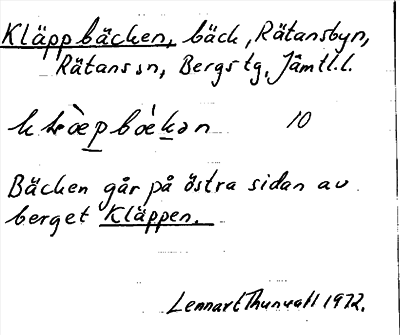 Kläppbäcken, bäck, Rätansbyn,
Rätans sn, Bergs tg, Jämtl.l.
10
Bäcken går på östra sidan av
berget Kläppen.
Lennart Thunvall 1972.